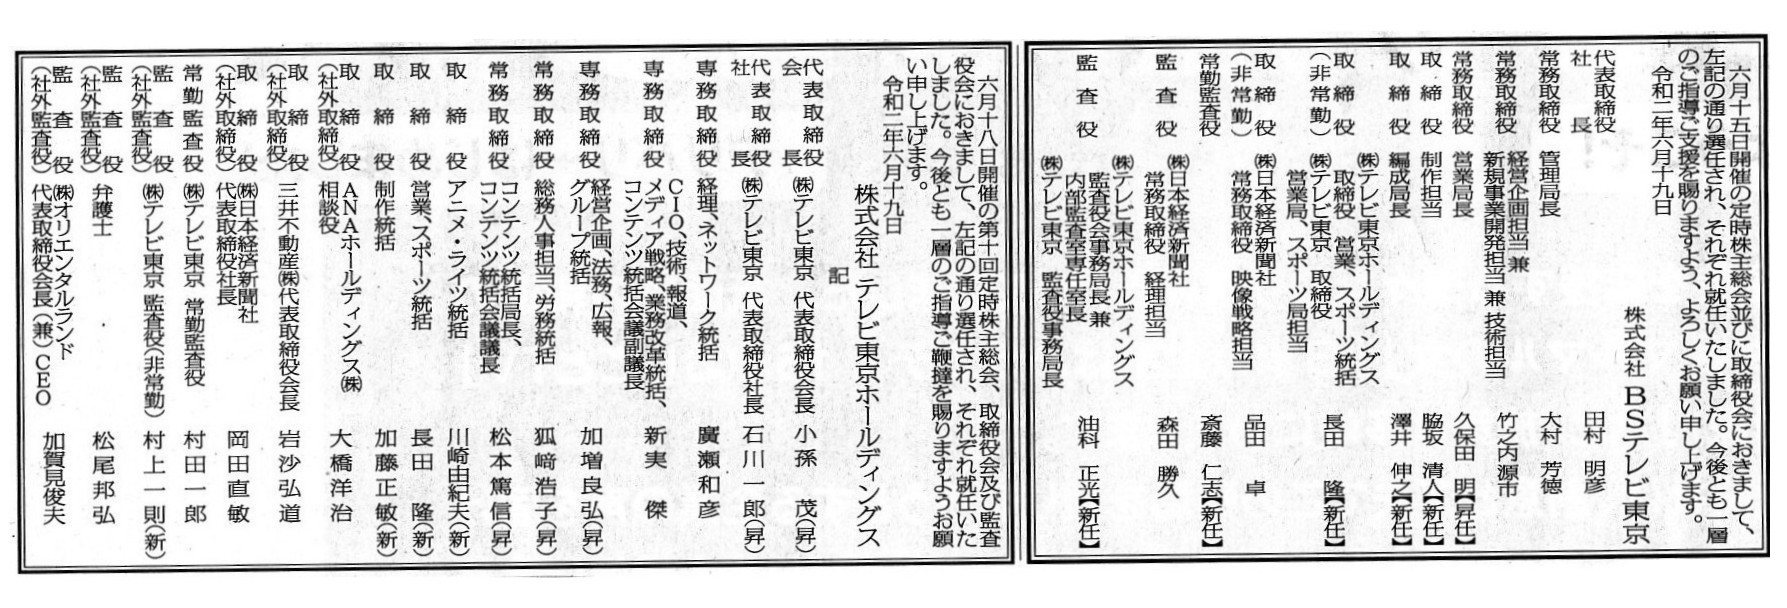 六月十五日開催の定時株主総会並びに取締役会におきまして、
左記の通り選任され、それぞれ就任いたしました。今後とも一層
のご指導ご支援を賜りますよう、よろしくお願い申し上げます。
令和二年六月十九日
株式会社 BSテレビ東京
代表取締役社長 田村 明彦
常務取締役 管理局長 大村 芳徳
常務取締役 経営企画担当 兼
新規事業開発担当 兼 技術担当 竹之内源市
常務取締役 営業局長 久保田 明【昇任】
取締役 制作担当 脇坂 清人【新任】
取締役 編成局長 澤井 伸之【新任】
取締役(非常勤) ㈱テレビ東京ホールディングス
取締役 営業、スポーツ統括
㈱テレビ東京 取締役
営業局、スポーツ局担当 長田 隆【新任】
取締役(非常勤) ㈱日本経済新聞社
常務取締役 映像戦略担当 品田 卓
常勤監査役 斎藤 仁志【新任】
監査役 ㈱日本経済新聞社
常務取締役 経理担当 森田 勝久
監査役 ㈱テレビ東京ホールディングス
監査役会事務局長 兼
内部監査室専任室長
㈱テレビ東京 監査役事務局長 油科 正光【新任】
六月十八日開催の第十回定時株主総会、取締役会及び監査
役会におきまして、左記の通り選任され、それぞれ就任いた
しました。今後とも一層のご指導ご鞭撻を賜りますようお願
い申し上げます。
令和二年六月十九日
株式会社 テレビ東京ホールディングス
記
代表取締役会長 ㈱テレビ東京 代表取締役会長 小孫 茂(昇)
代表取締役社長 ㈱テレビ東京 代表取締役社長 石川一郎(昇)
専務取締役 経理、ネットワーク統括 廣瀬和彦
専務取締役 CIO、技術、報道、
メディア戦略、業務改革統括、
コンテンツ統括会議副議長 新実 傑
専務取締役 経営企画、法務、広報、
グループ統括 加増良弘(昇)
常務取締役 総務人事担当、労務統括 狐﨑浩子(昇)
常務取締役 コンテンツ統括局長、
コンテンツ統括会議議長 松本篤信(昇)
取締役 アニメ・ライツ統括 川崎由紀夫(新)
取締役 営業、スポーツ統括 長田 隆(新)
取締役 制作統括 加藤正敏(新)
取締役(社外取締役) ANAホールディングス㈱
相談役 大橋洋治
取締役(社外取締役) 三井不動産㈱代表取締役会長 岩沙弘道
取締役(社外取締役) ㈱日本経済新聞社
代表取締役社長 岡田直敏
常勤監査役 ㈱テレビ東京 常勤監査役 村田一郎
監査役(社外監査役) ㈱テレビ東京 監査役(非常勤) 村上一則(新)
監査役(社外監査役) 弁護士 松尾邦弘
監査役(社外監査役) ㈱オリエンタルランド
代表取締役会長(兼)CEO 加賀見俊夫